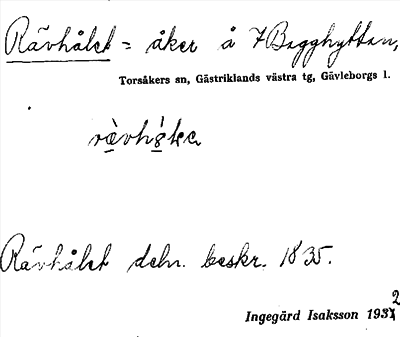 Rävhålet = åker å 7 Bagghyttan,
Torsåkers sn, Gästriklands västra tg, Gävleborgs l.
Rävhålet deln. beskr. 1835.
Ingegärd Isaksson 1932